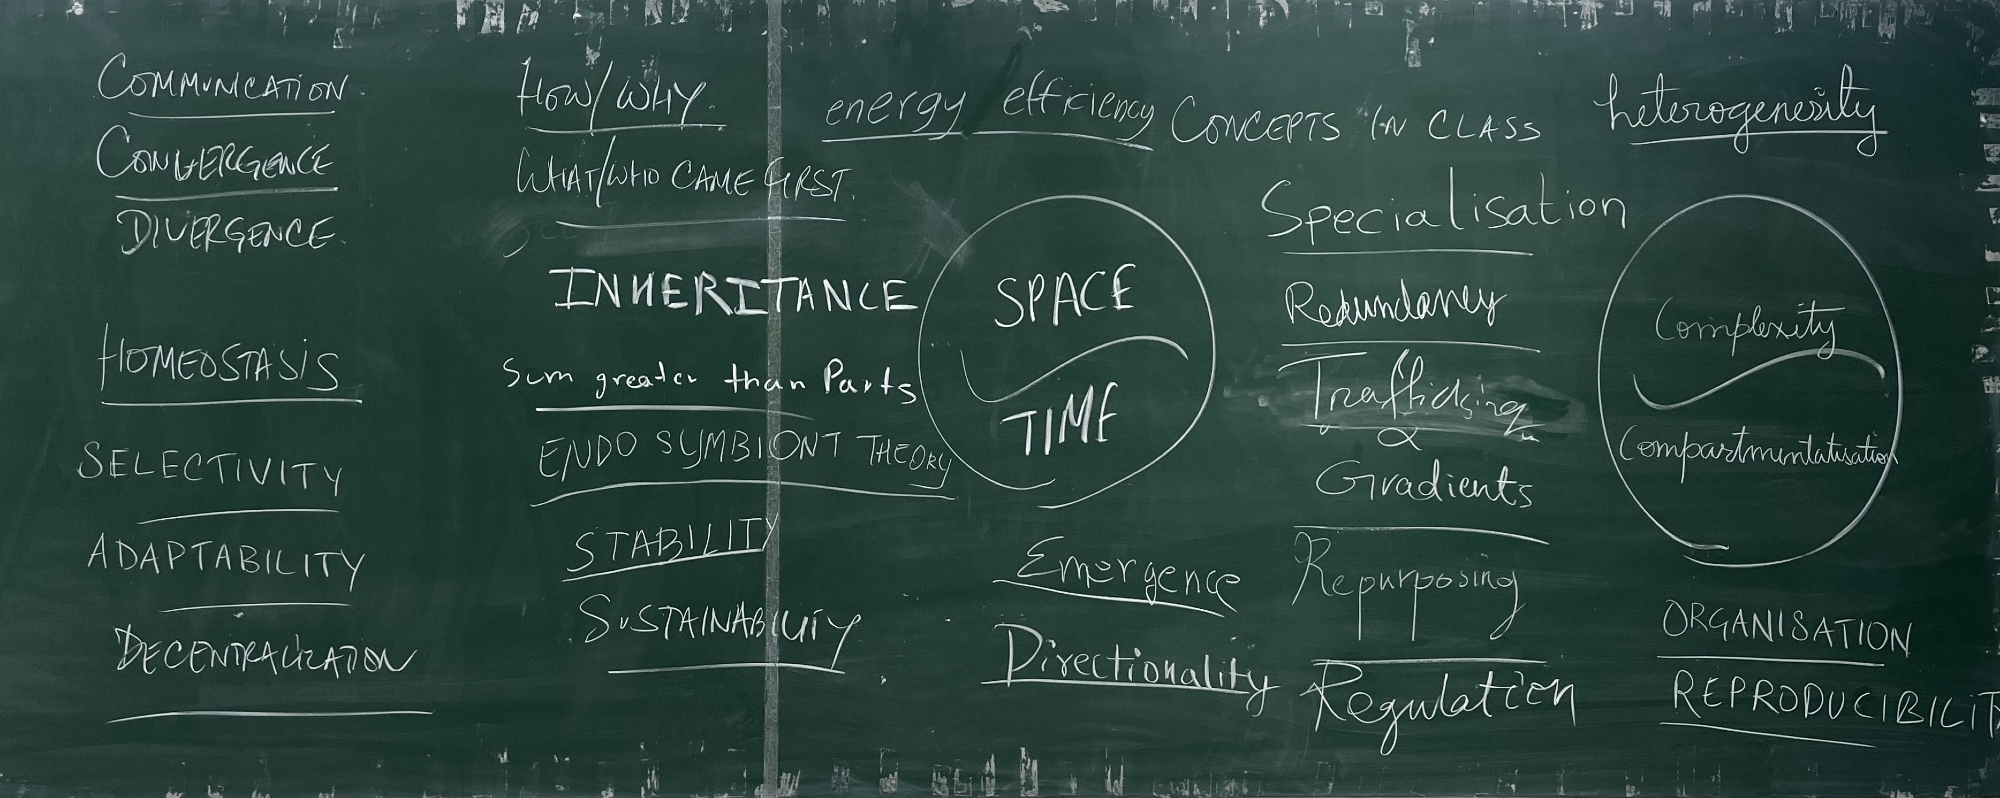 COMMUNICATION.
CONVERGENCE
DIVERGENCE.
HOMEOSTASIS
SELECTIVITY
ADAPTABILITY
DECENTRALIZATION
HOW/WHY.
WHAT/WHO CAME FIRST.
INHERITANCE
Sum greater than Parts
ENDO SYMBIONT THEORY
STABILITY
SUSTAINABILITY
energy efficiency
SPACE
TIME
Emergence
Directionality
CONCEPTS IN CLASS
Specialisation
Redundancy
Trafficking
&
Gradients
Repurposing
Regulation
heterogenesity
Complexity
Compartmentatisation
ORGANISATION
REPRODUCIBILIT